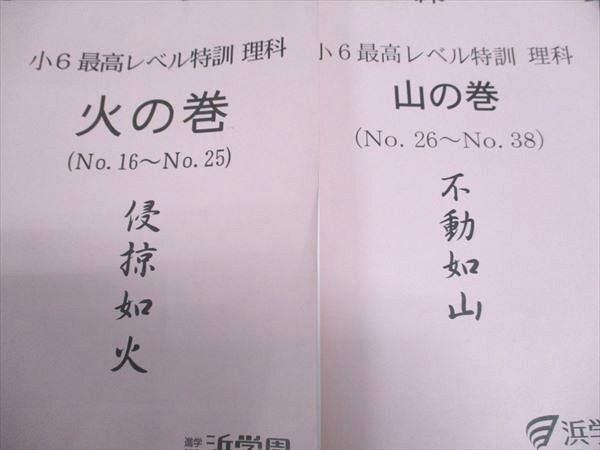 小6最高レベル特訓 理科
火の巻
(No.16～No.25)
侵掠如火
進学
浜学園
小6最高レベル特訓 理科
山の巻
(No. 26～No. 38)
不動如山
浜学